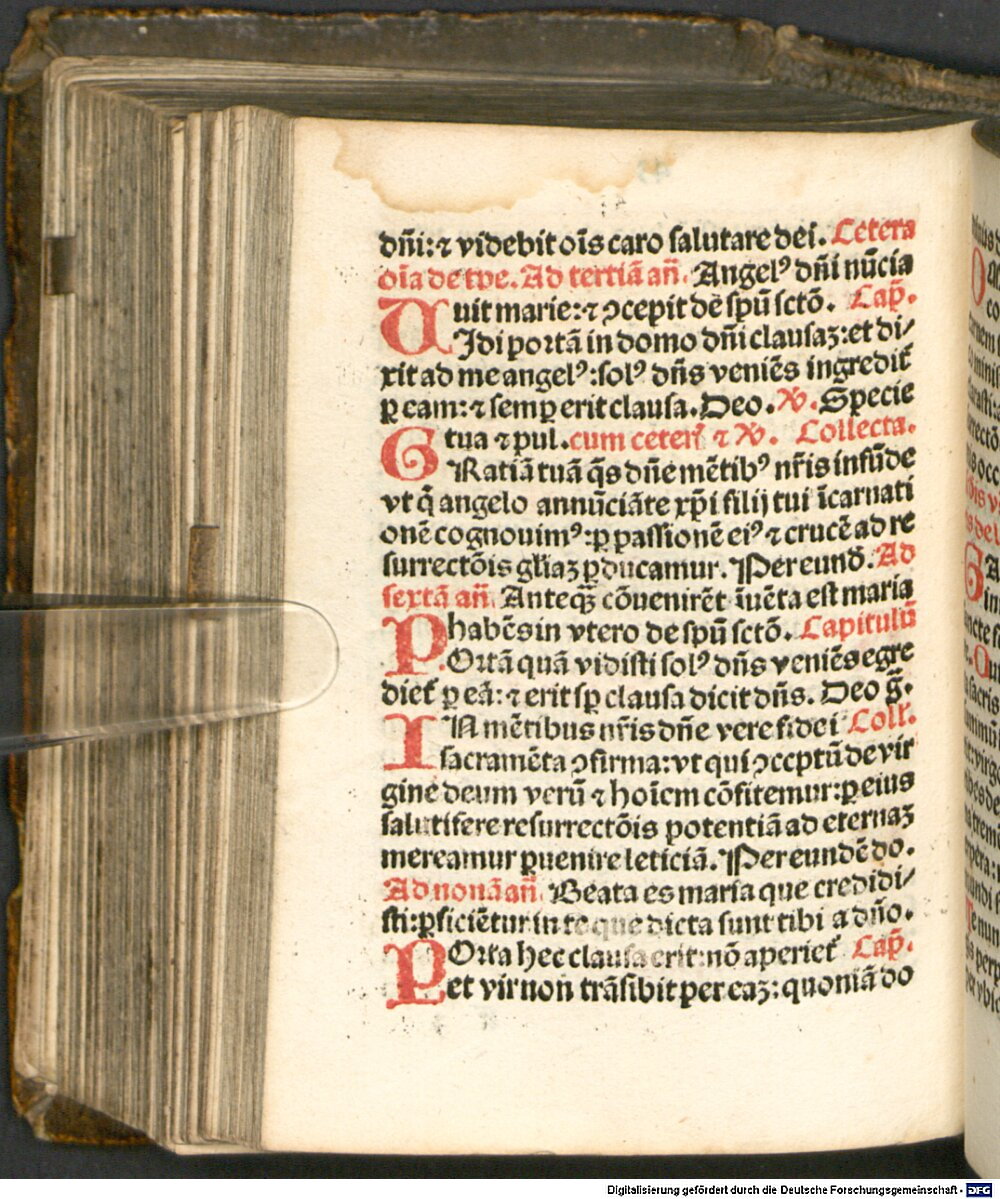 dñi:⁊ videbit oīs caro salutare dei. Cetera
oīa de tpe. Ad tertiā añ. Angelꝰ dñi nūcia
uit marie:⁊ ↄcepit de spū sctō. Cap̄.
UIdi portā in domo dñi clausaꝫ:et di/
xit ad me angelꝰ:solꝰ dñs veniēs ingredit̄
ꝑ eam:⁊ semꝑ erit clausa. Deo. ℣. Specie
tua ⁊ pul. cum ceter̄ ⁊ ℣. Collecta.
GRatiā tuā q̄s dñe mētibꝰ nr̄is infūde
vt q̄ angelo annūciāte xp̄i filij tui īcarnati
onē cognouimꝰ:ꝑ passionē eiꝰ ⁊ crucē ad re
surrectōis gl̄iaꝫ ꝑducamur. Per eund̄. Ad
sextā añ. Anteq̄ꝫ cōuenirēt īuēta est maria
habēs in vtero de spū sctō. Capitulū
POrtā quā vidisti solꝰ dñs veniēs egre
diet̄ ꝑ eā:⁊ erit sp̄ clausa dicit dñs. Deo g̃.
IN mētibus nr̄is dñe vere fidei Coll̄.
sacramēta ↄfirma:vt qui ↄceptū de vir
gine deum verū ⁊ hoīem cōfitemur:ꝑ eius
salutifere resurrectōis potentiā ad eternaꝫ
mereamur ꝑuenire leticiā. Per eundē do.
Ad nonā añ. Beata es maria que credidi/
sti:ꝑficiētur in te que dicta sunt tibi a dño.
POrta hec clausa erit:nō aperiet̄ Cap̄.
et vir non trāsibit per eaꝫ:quoniā do
Digitalisierung gefördert durch die Deutsche Forschungsgemeinschaft - DFG